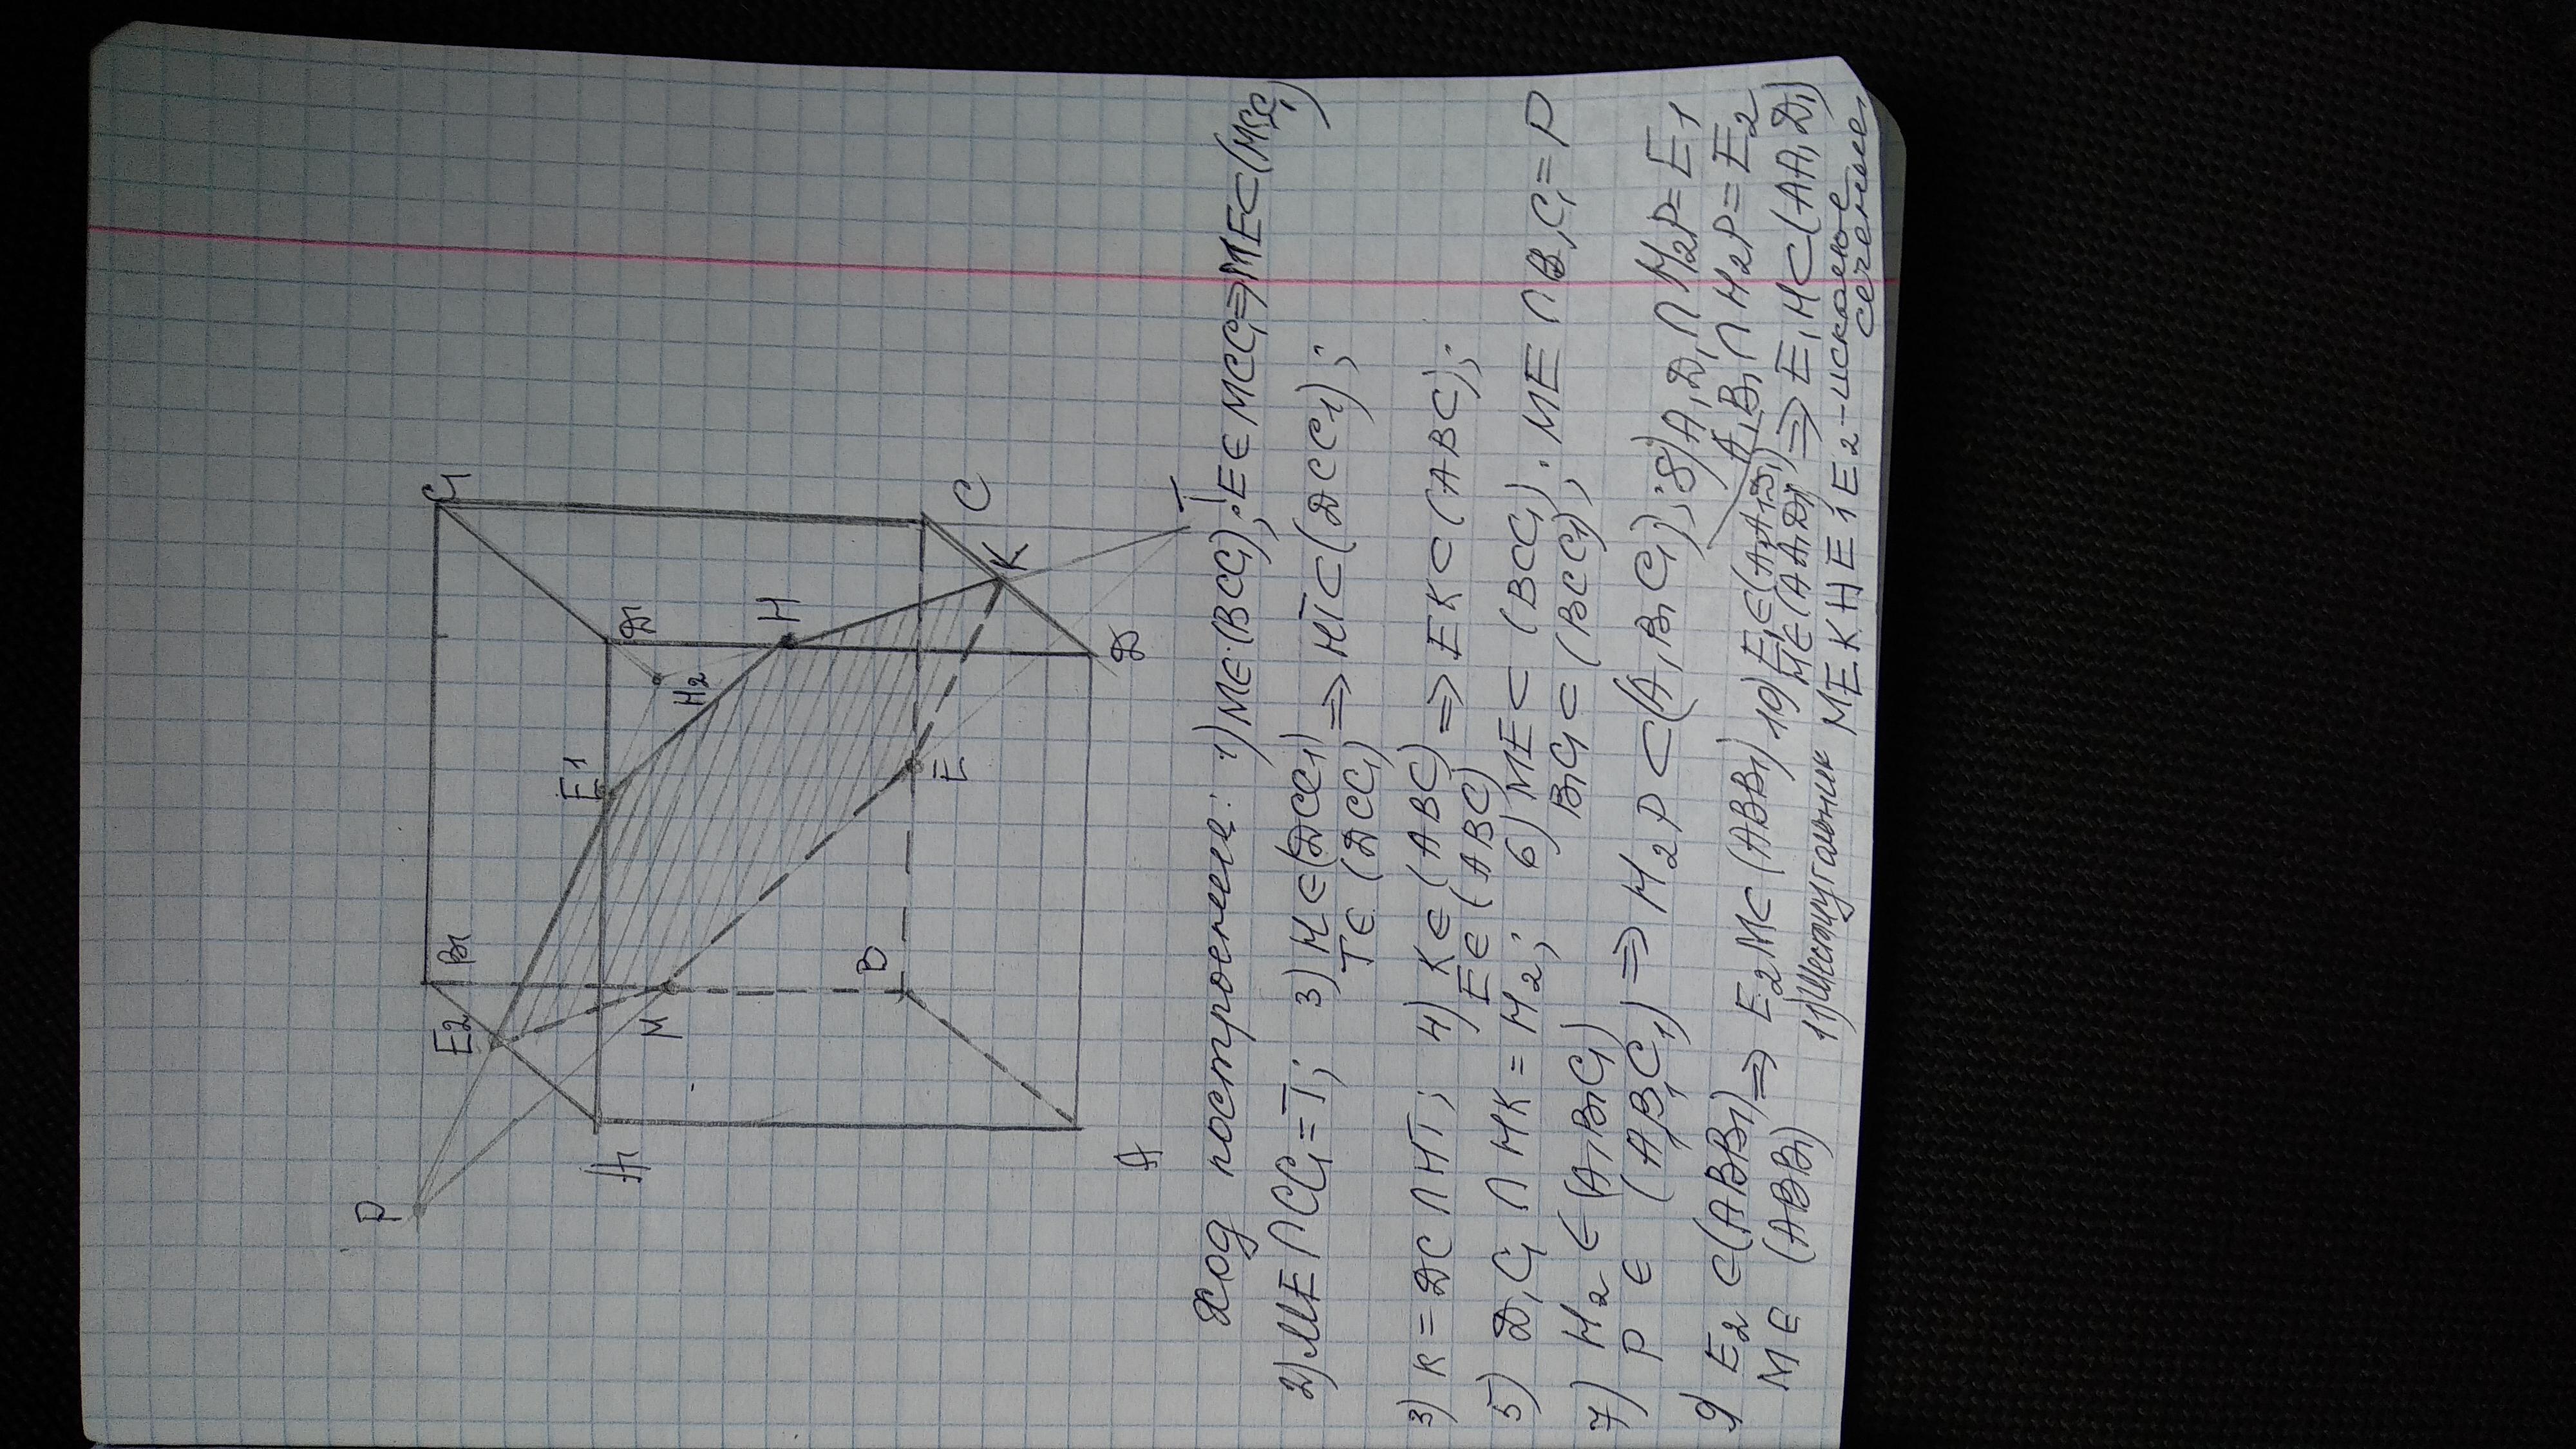 P
B1
C1
E2
A1
E1
D1
M
H2
H
B
E
C
K
A
D
T
Ход построения: 1) M∈(BCC1); E∈MCC1⇒ME⊂(MCC1)
2) ME∩CC1=T; 3) H∈(DCC1)
T∈(DCC1) ⇒ HT⊂(DCC1);
3) K=DC∩HT; 4) K∈(ABC)
E∈(ABC) ⇒ EK⊂(ABC);
5) D1C1∩HK=H2; 6) ME⊂(BCC1). ME∩B1C1=P
B1C1⊂(BCC1);
7) H2∈(A1B1C1)
P∈(A1B1C1) ⇒ H2P⊂(A1B1C1); 8) A1D1∩H2P=E1
A1B1∩H2P=E2
9) E2∈(ABB1)
M∈(ABB1) ⇒ E2M⊂(ABB1) 10) E1∈(AA1D1)
H∈(AA1D1) ⇒ E1H⊂(AA1D1)
11) Шестиугольник MEKHE1E2-искомое
сечение